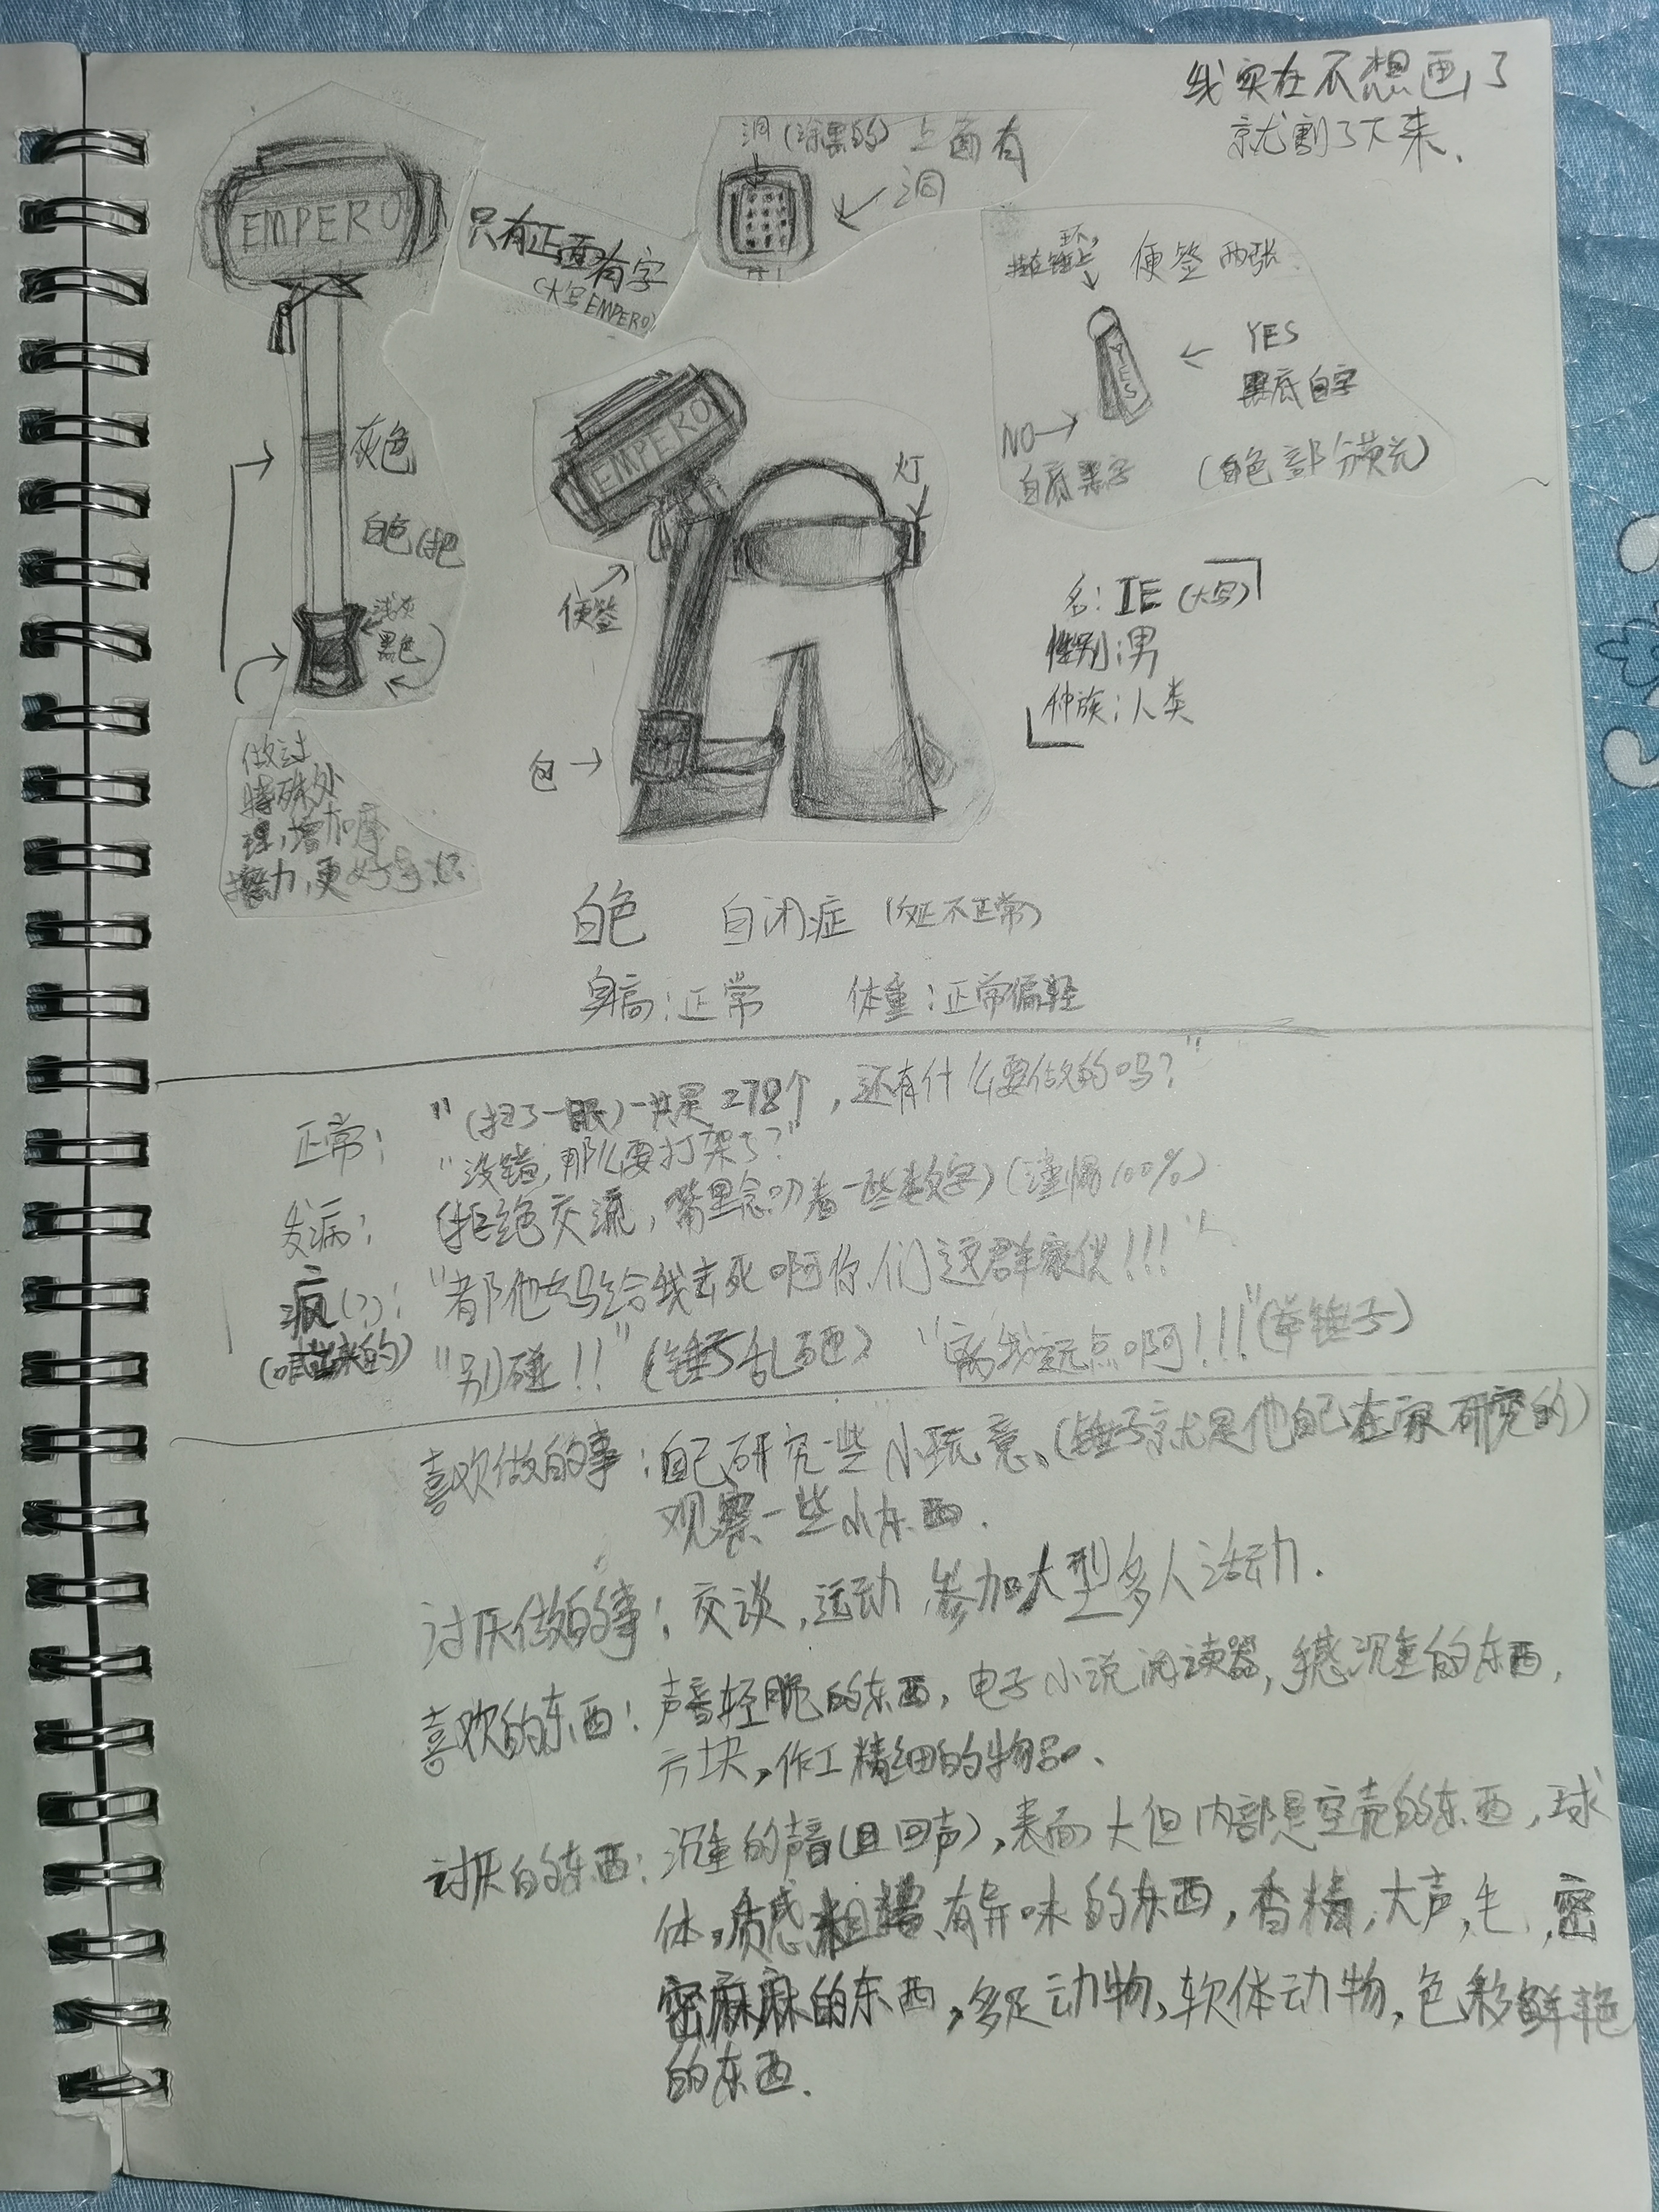 我实在不想画了
就割了下来.
EMPERO
只有正面有字
(大写EMPERO)
洞(涂黑的) 上面有
洞
环,
挂在锤上
便签 两张
YES
YES
黑底白字
NO
白底黑字
(白色部分荧光)
灰色
白色(把
浅灰
黑色
做过
特殊处
理,增加摩
擦力,更好
EMPERO
灯
便签
包
名: IE (大写)
性别:男
种族:人类
白色 自闭症 (不正常)
身高:正常 体重:正常偏轻
正常: "(扫了一眼)一共是278个,还有什么要做的吗?"
"没错,那么要打架了?"
发病: (拒绝交流,嘴里念叨着一些数字)(100%)
疯(?): "都他去马给我去死啊你们这群家伙!!!"
(喊出来的) "别碰!!"(锤子乱砸) "离我远点啊!!!"(举锤子)
喜欢做的事:自己研究一些小玩意、(锤子就是他自己在家研究的)
观察一些小东西.
讨厌做的事:交谈,运动,参加大型多人活动.
喜欢的东西:声音轻脆的东西,电子小说阅读器,手感沉重的东西,
方块,作工精细的物品.
讨厌的东西:沉重的声音(且回声),表面大但内部是空壳的东西,球
体,质感粗糙、有异味的东西,香精,大声,毛,密
密麻麻的东西,多足动物,软体动物,色彩鲜艳
的东西.